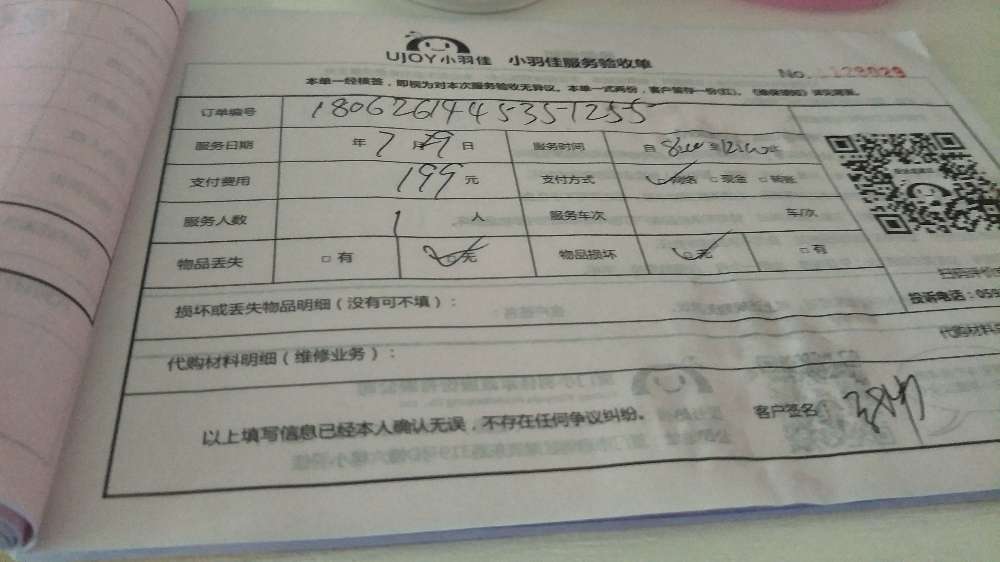 UJOY小羽佳 小羽佳服务验收单
No. 1128029
本单一经核答,即视为对本次服务验收无异议。本单一式两份,客户留存一份(红)。
订单编号 180626144535-1255
服务日期 年 7 月 日 服务时间 自 至
支付费用 199 元 支付方式 网络 □现金 □转账
服务人数 1 人 服务车次 车/次
物品丢失 □有 □无 物品损坏 □无 □有
损坏或丢失物品明细(没有可不填):
投诉电话:059
代购材料明细(维修业务):
代购材料
以上填写信息已经本人确认无误,不存在任何争议纠纷。 客户签名: